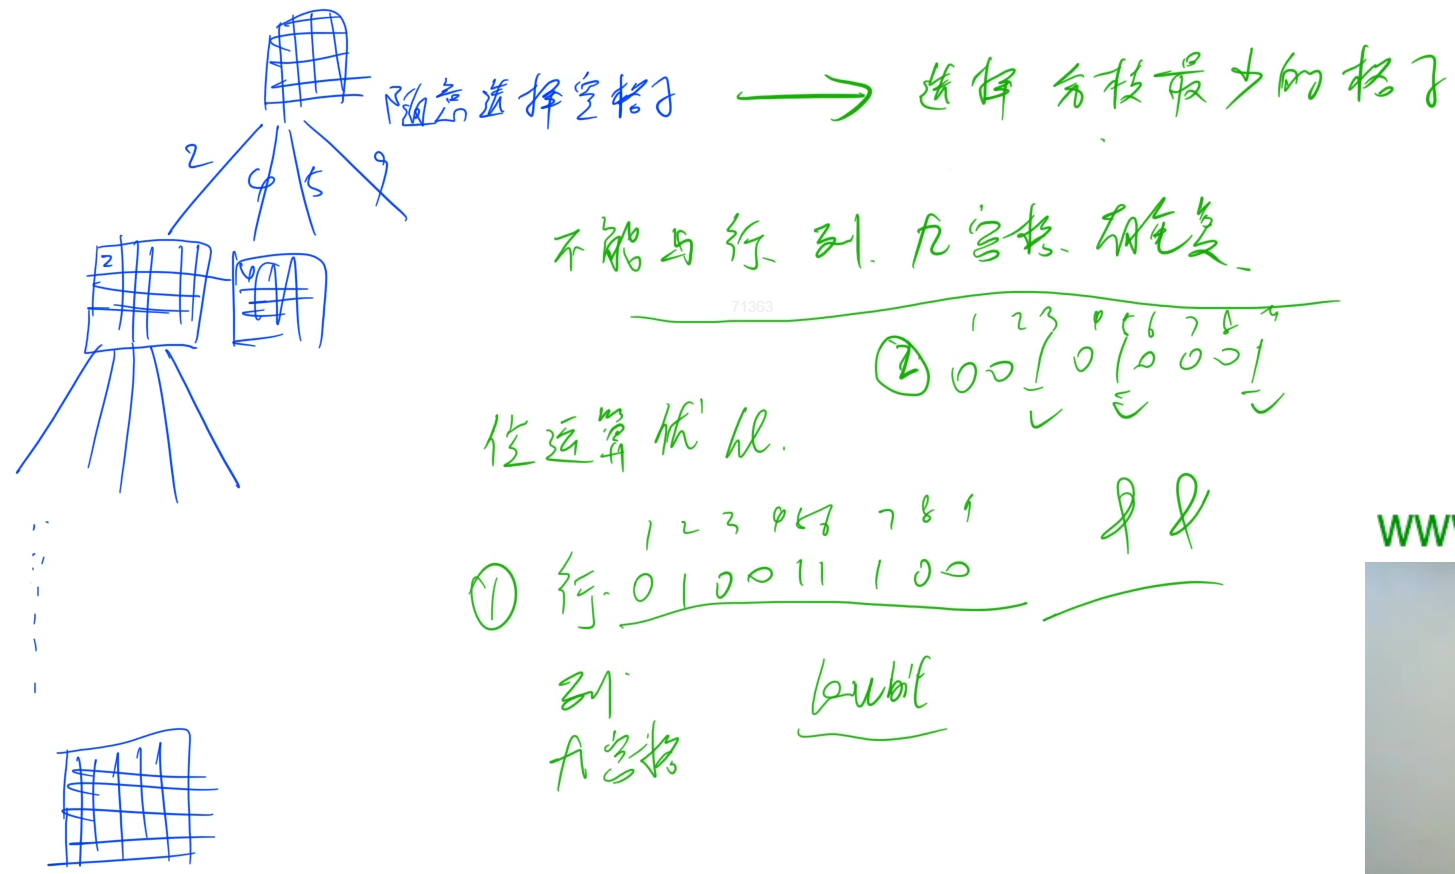 随意选择空格子 → 选择分枝最少的格子
2 4 5 9
不能与行、列、九宫格、有重复
2
4
71363
1 2 3 4 5 6 7 8 9
② 0 0 1 0 1 0 0 0 1
位运算优化.
1 2 3 4 5 6 7 8 9
① 行. 0 1 0 0 1 1 1 0 0
& &
列
lowbit
九宫格
WW